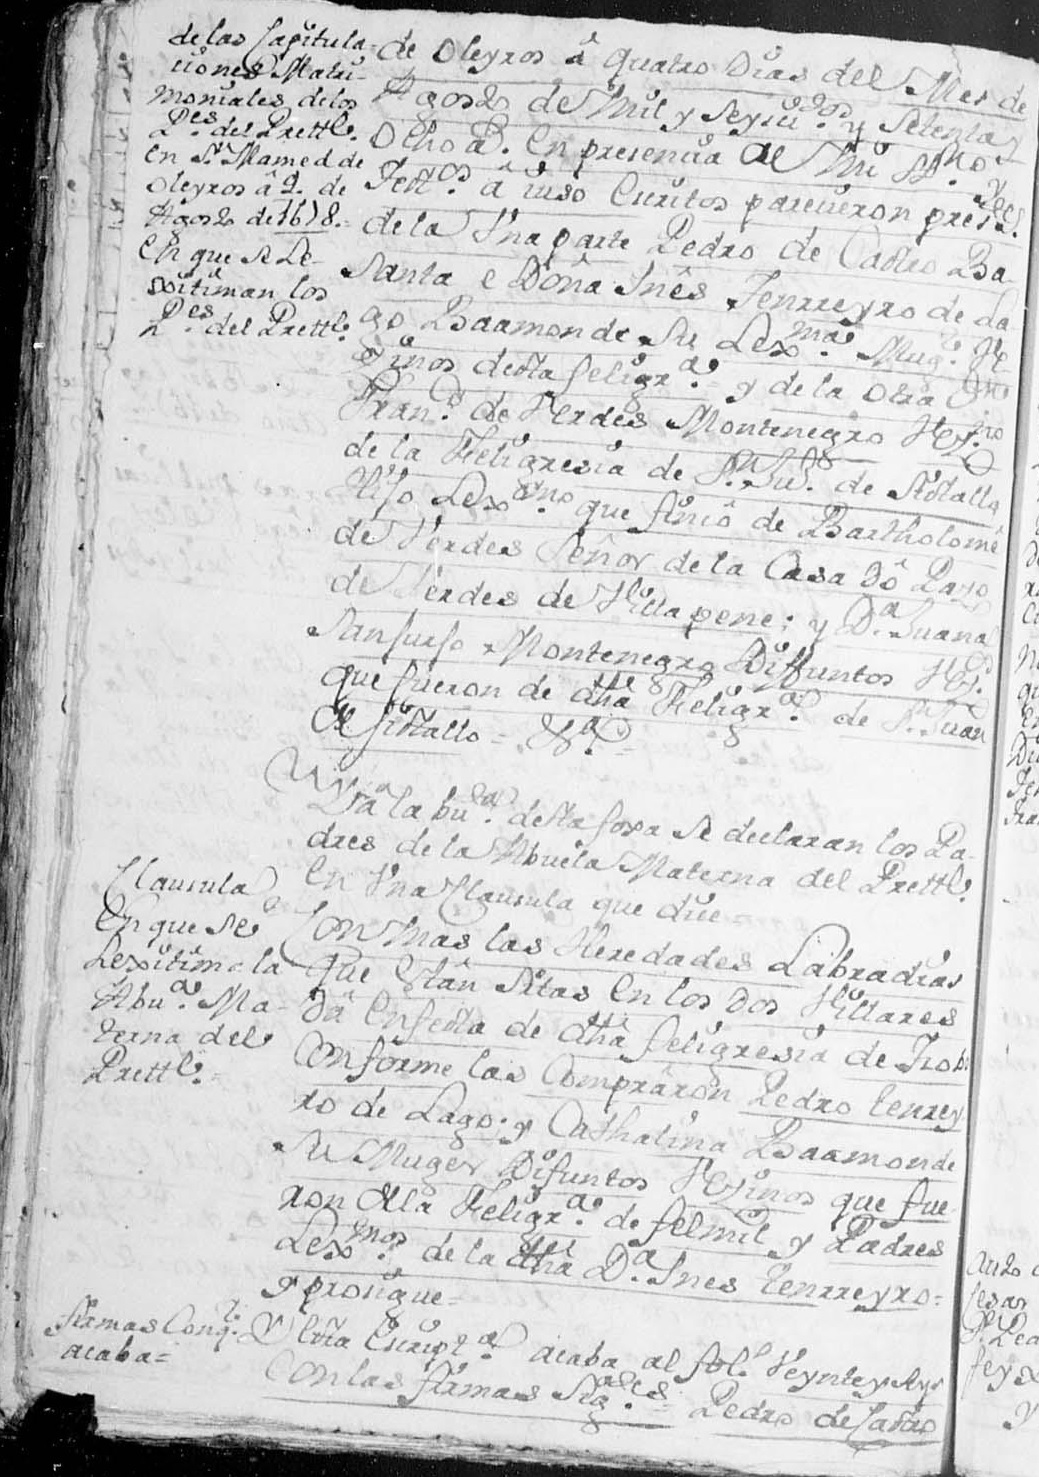 de las Capitula-
ciones Matri-
moniales de los
P.es del Prettte.
en S.n Mamed de
Oleyros â 2. de
Agosto de 1678.=
en que se Le-
xitiman los
P.es del Prettte.
de Oleyros â quatro Dias del Mes de
Agosto de Mil y Seysci.os y Setenta y
Ocho a.s En presencia de Mi SS.no
Tess.os â iuso Escritos parecieron pres.tes
de la Una parte Pedro de Castro Ba-
santa e Doña Inês Tenrreyro de La
go Baamonde Su Lex.ma Mug.r Ve
zinos desta feligr.a = y de la otra
Fran.co de Verdes Montenegro Vez.no
de la Feligresia de S.n Ju.o de Sistallo
Hijo Lex.mo que fincô de Bartholomê
de Verdes Señor de la Casa dô Pazo
de Verdes de Villapene; y D.a Juana
Sanjurjo Montenegro Diffuntos Vez.s
que fueron de dha Feligr.a de S.n Juan
de Sistallo = &.a =
Y â la bu.ta desta foxa se declaran los Pa-
dres de la Abuela Materna del Prettte.
en Una Clausula que dice
Clausula
en que se
Lexitima la
Abu.a Ma-
terna del
Prettte. =
Con mas las Heredades Labradias
que Estân Sitas en los dos Villares
dâ Enfesta de dha feligresia de
Conforme las Comprâron Pedro tenrrey
ro de Lago; y Cathalina Baamonde
Su Muger Difuntos Vezinos que fue
ron della Feligr.a de felmil y Padres
Lex.mos de la dha D.a Ines tenrreyro =
y prosigue =
firmas Conq.e
acaba =
Y esta Escript.a acaba al fol.o Veynte y Seys
Con las firmas Sig.tes = Pedro de Castro